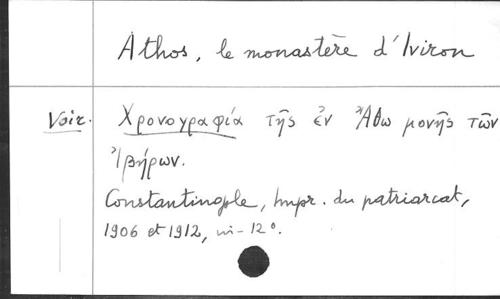 Athos, le monastère d'Iviron
Voir. Χρονογραφία τῆς ἐν Ἄθω μονῆς τῶν
Ἰβήρων.
Constantinople, Impr. du patriarcat,
1906 et 1912, in-12°.